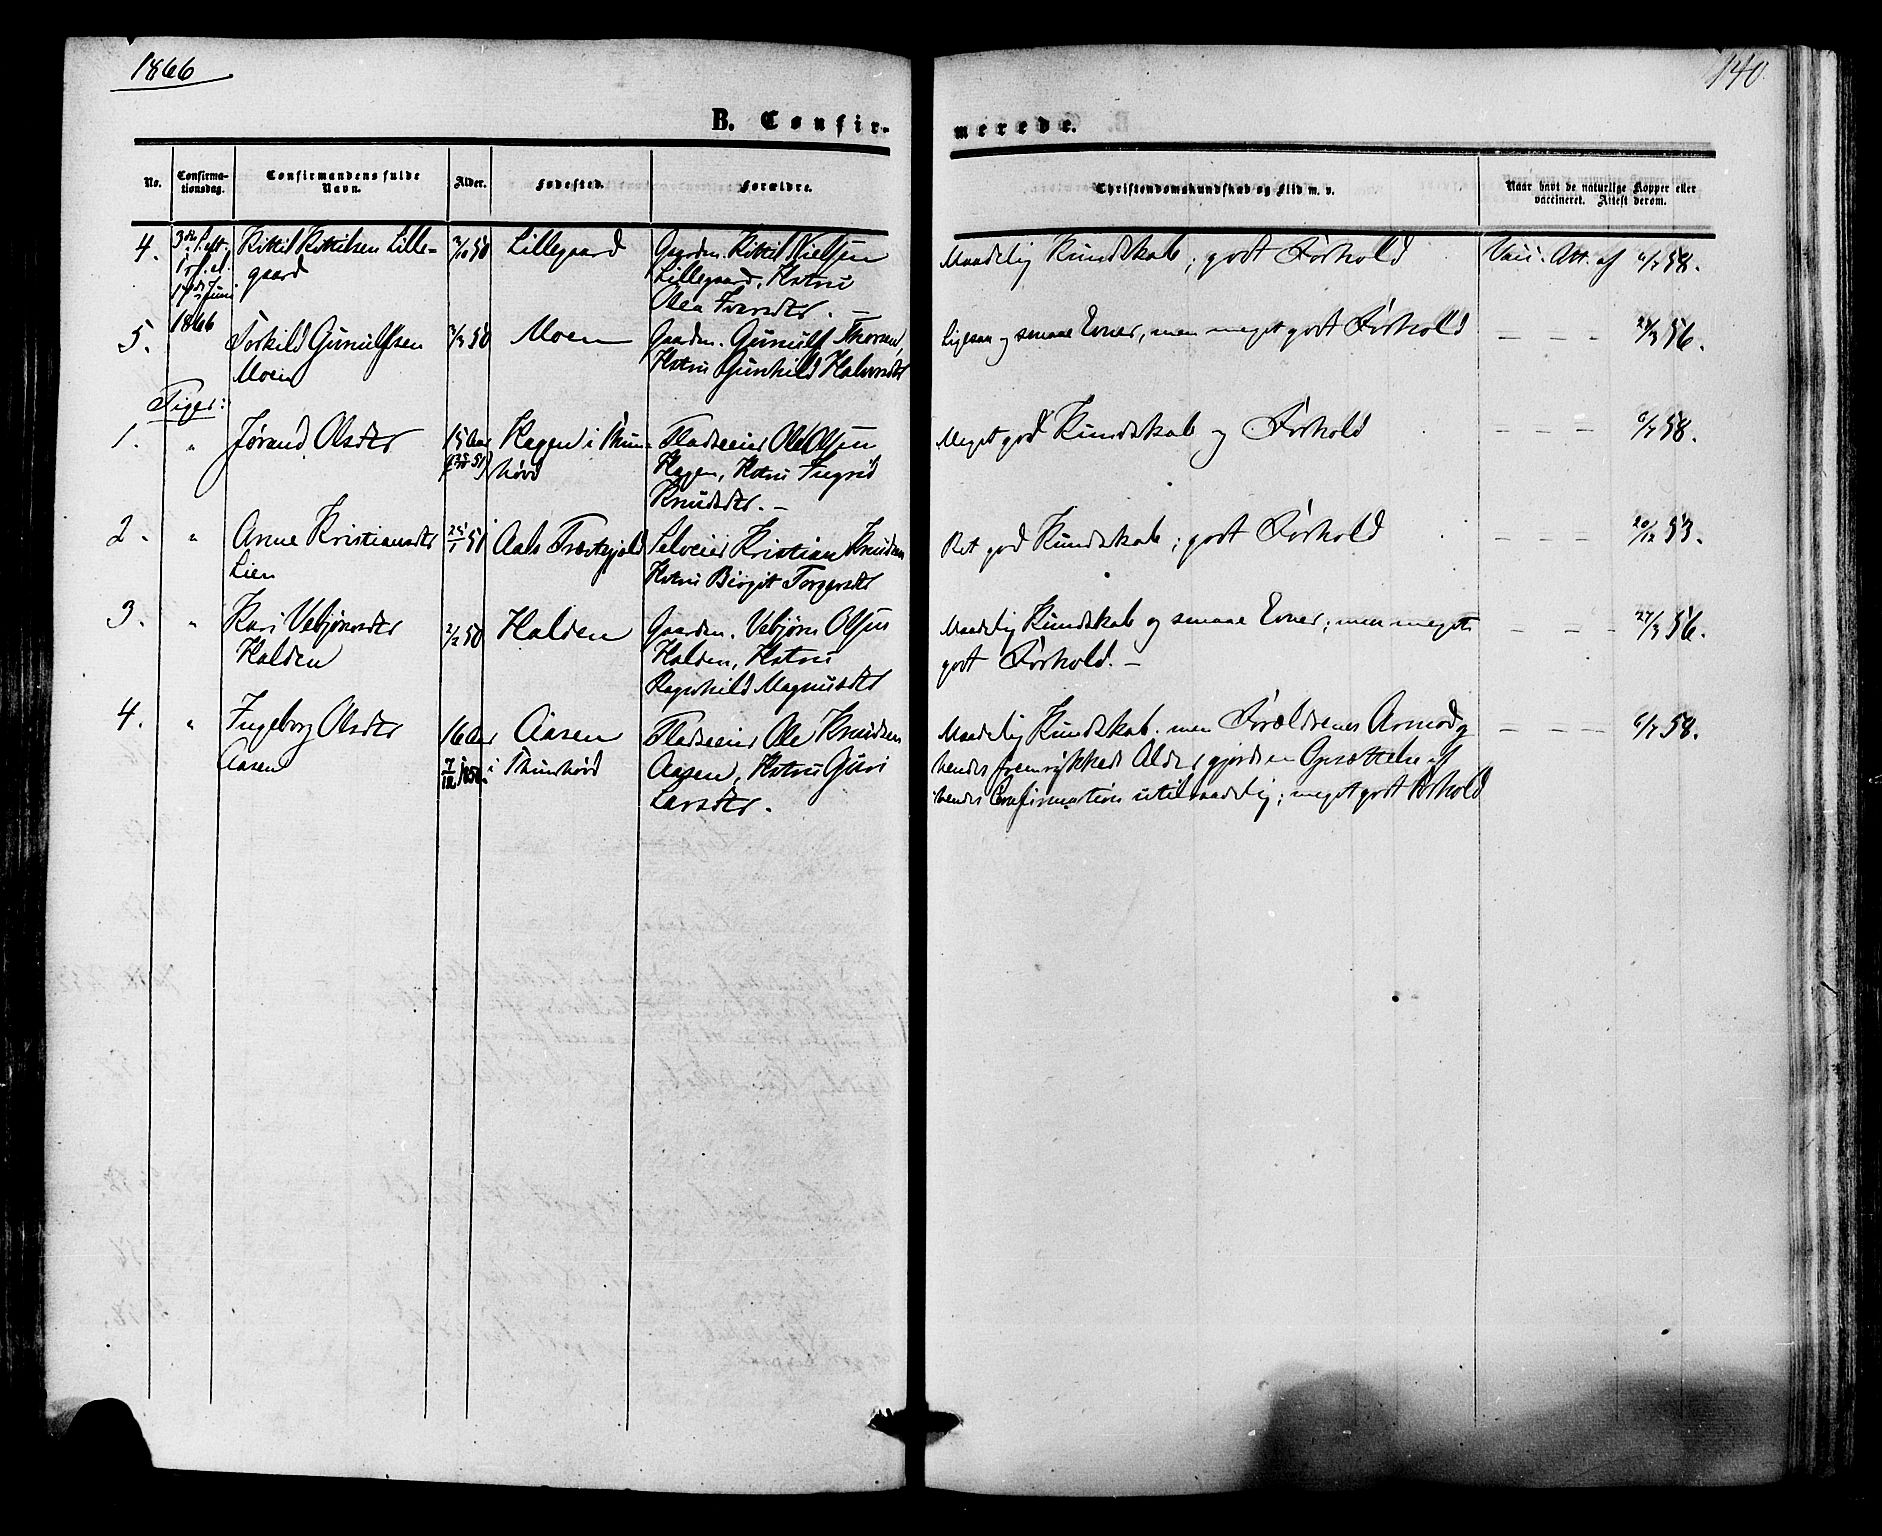 1866
140
B. Confir-
merede.
No.
Confirma-
tionsdag.
Confirmandens fulde
Navn.
Alder.
Fødested.
Forældre.
Christendomskundskab og Flid m. v.
Naar havt de naturlige Kopper eller
vaccineret. Attest derom.
4.
17de Juni
1866
Kittil Kittilsen Lille-
gaard
50
Lillegaard
Gaardm. Kittil Nielsen
Lillegaard, Hstru
Olea Iversdtr. —
Maadelig Kundskab; godt Forhold
Vaii. Att. af 6/7 58.
5.
Torkild Gunulfsen
Moen
50
Moen
Gaardm. Gunulf Thorsen,
Hstru Gunhild Halvorsdtr
Ligesaa og smaae Evner, men meget godt Forhold
— — — 56.
Piger:
1.
"
Jørand Olsdtr
15 Aar
Hagen i Thun-
hövd
Pladseier Ole Olsen
Hagen, Hstru Ingrid
Knudsdtr. —
Meget god Kundskab og Forhold
6/7 58.
2.
"
Anne Kristiansdtr
Lien
25/1 51
Aals Præstegjeld
Selveier Kristian Knudsen
Hstru Birgit Torgersdtr
Ret god Kundskab; godt Forhold
— — — 20/12 53.
3.
"
Kari Vebjørnsdtr
Halden
2/2 50
Halden
Gaardm. Vebjørn Olsen
Halden, Hstru
Ragnhild Magnusdtr
Maadelig Kundskab og smaae Evner; men meget
godt Forhold. —
— — — 27/3 56.
4.
"
Ingeborg Olsdtr
Aasen
16 Aar
7/12 1850.
Aasen
i Thunhövd
Pladseier Ole Knudsen
Aasen, Hstru Guri
Larsdtr.
Maadelig Kundskab. men Forældrenes Armod og
hendes fremrykkede Alder gjorde en Opsættelse af
hendes Confirmation utilraadelig; meget godt Forhold
— — — 6/7 58.